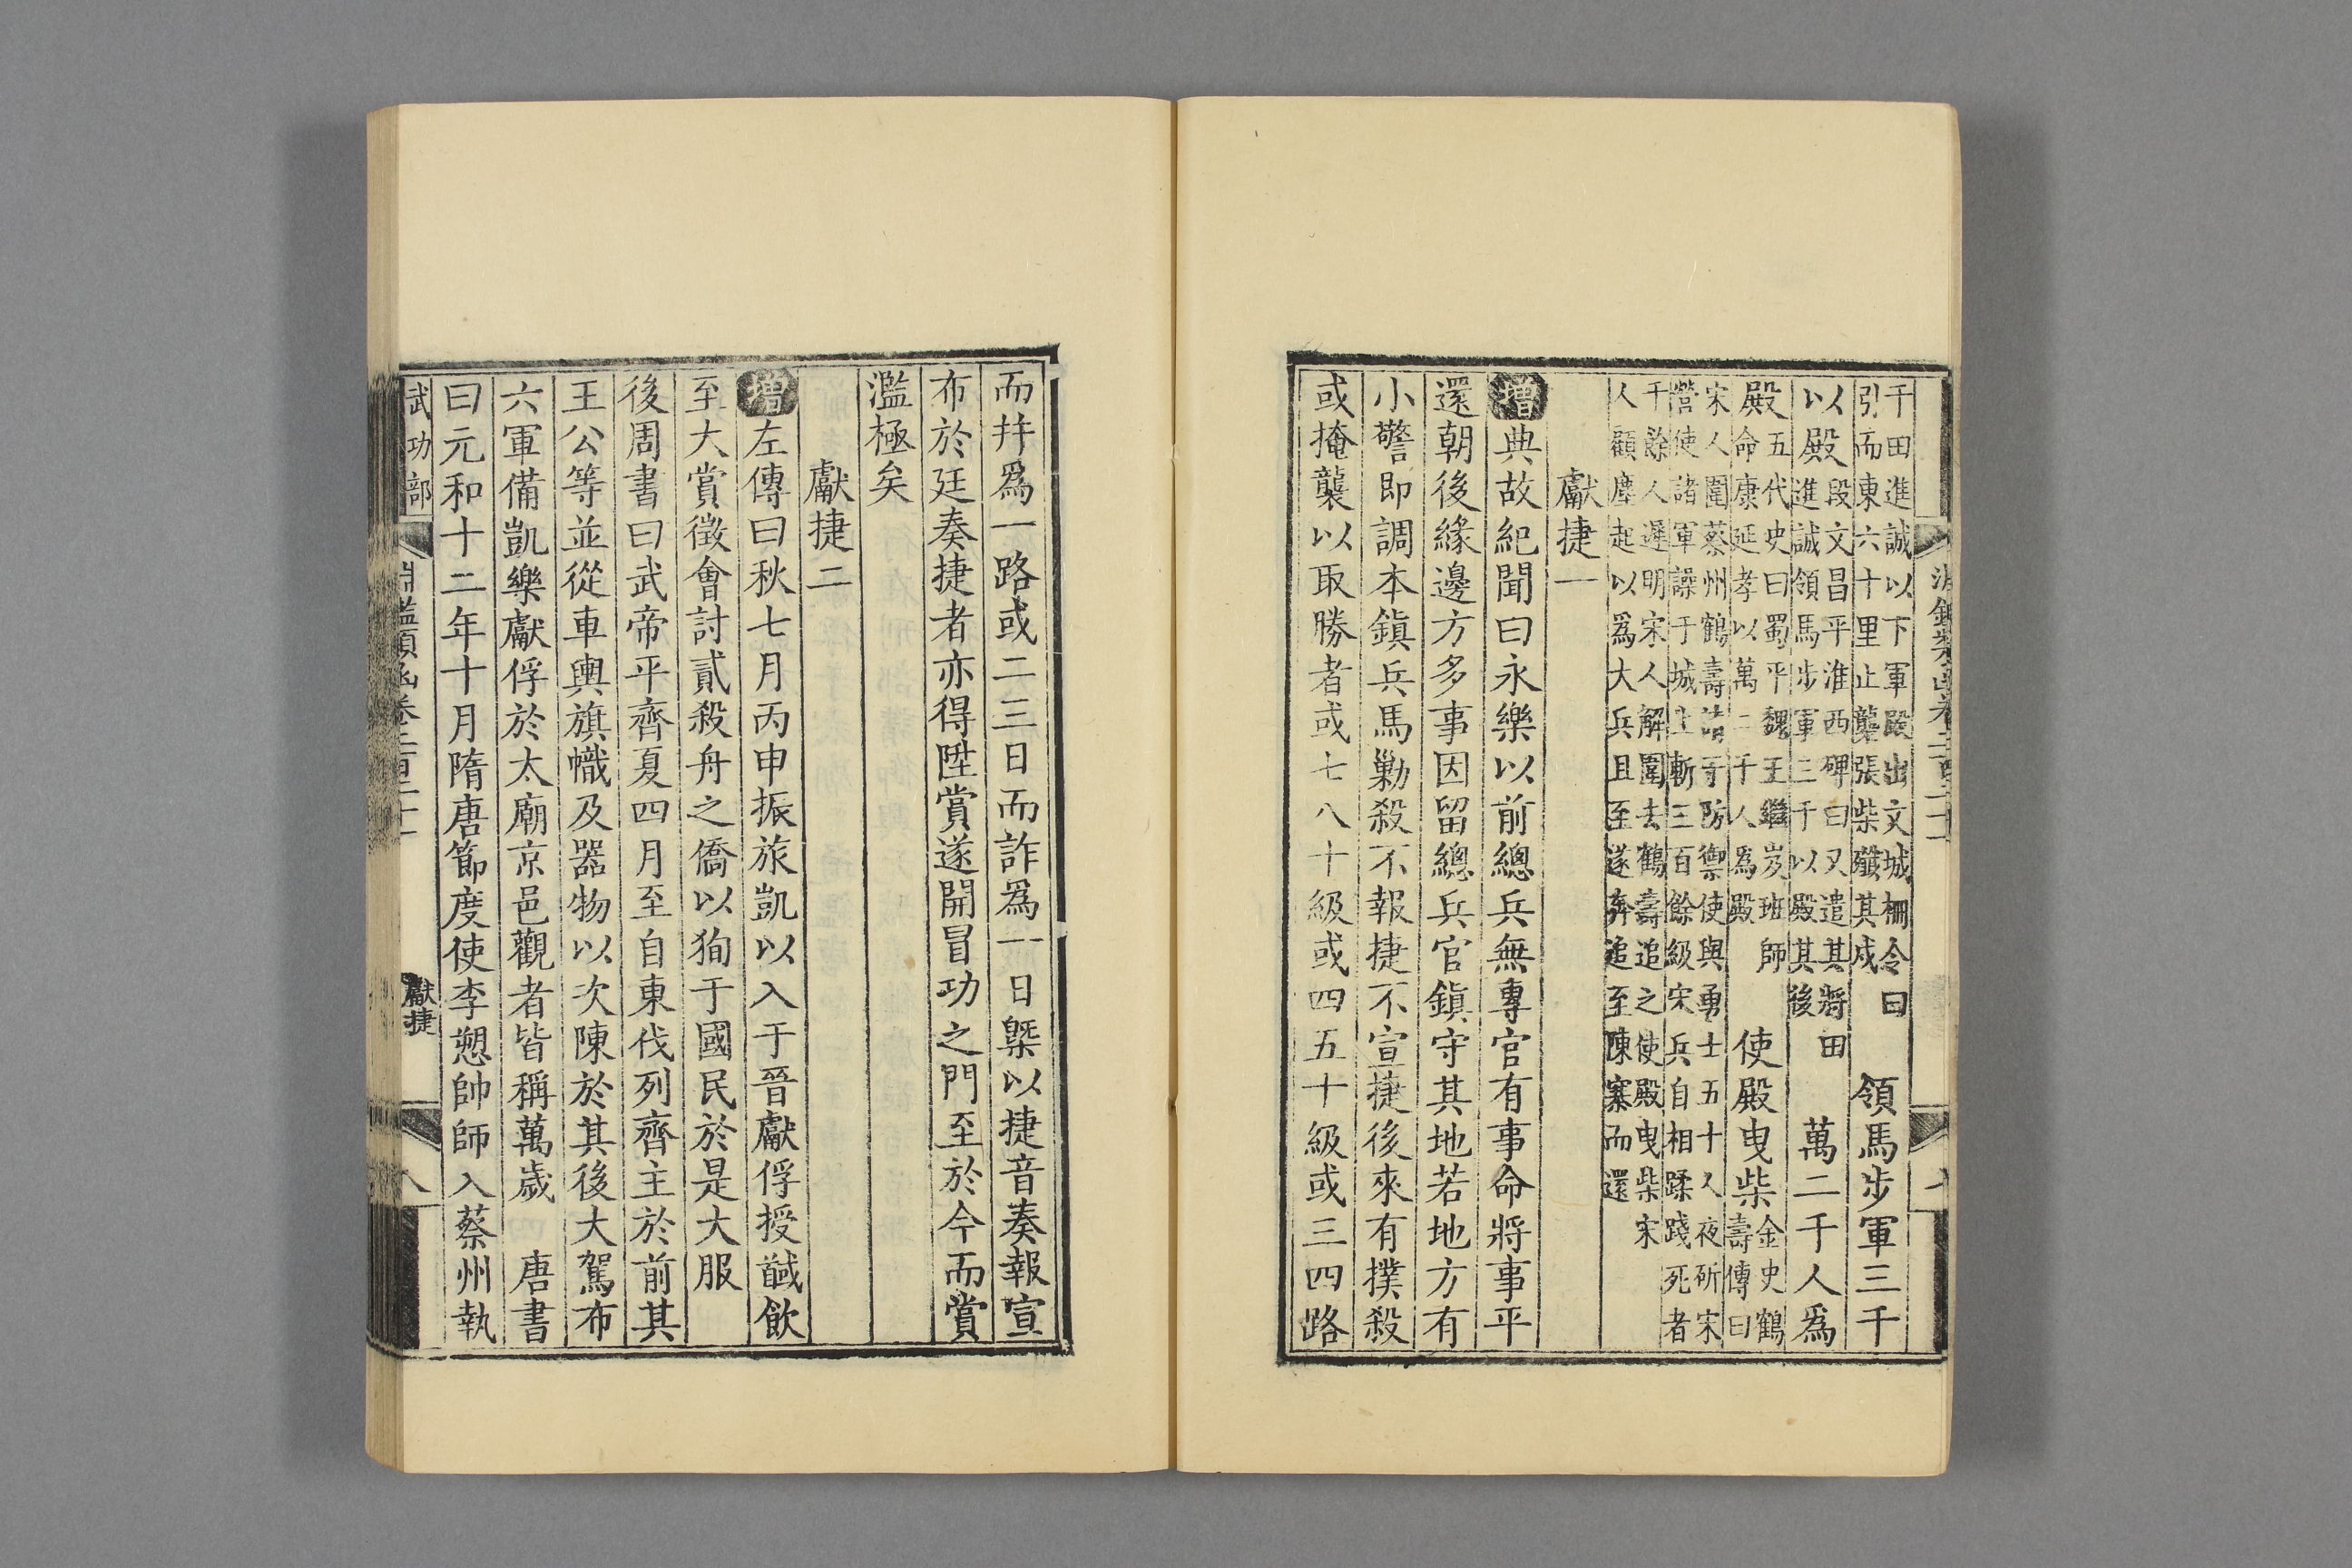 千田進誠以下軍殿出文城柵令曰
引而東六十里止襲張柴殲其戍
領馬步軍三千
以殿
段文昌平淮西碑曰又遣其將田
進誠領馬步軍三千以殿其後
萬二千人爲
殿
五代史曰蜀平魏王繼岌班師
命康延孝以萬二千人爲殿
使殿曳柴
金史鶴
壽傳曰
宋人圍蔡州鶴壽請于防禦使與勇士五十人夜斫宋
營使諸軍譟于城上斬三百餘級宋兵自相蹂踐死者
千餘人遲明宋人解圍去鶴壽追之使殿曳柴宋
人顧塵起以爲大兵且至遂奔追至陳寨而還
獻捷一
增典故紀聞曰永樂以前總兵無專官有事命將事平
還朝後緣邊方多事因留總兵官鎮守其地若地方有
小警即調本鎮兵馬勦殺不報捷不宣捷後來有撲殺
或掩襲以取勝者或七八十級或四五十級或三四路
而幷爲一路或二三日而詐爲一日槩以捷音奏報宣
布於廷奏捷者亦得陞賞遂開冒功之門至於今而賞
濫極矣
獻捷二
增左傳曰秋七月丙申振旅凱以入于晉獻俘授馘飲
至大賞徵會討貳殺舟之僑以狥于國民於是大服
後周書曰武帝平齊夏四月至自東伐列齊主於前其
王公等並從車輿旗幟及器物以次陳於其後大駕布
六軍備凱樂獻俘於太廟京邑觀者皆稱萬歲 唐書
曰元和十二年十月隋唐節度使李愬帥師入蔡州執
武功部 淵鑑類函卷二百二十一 獻捷 八